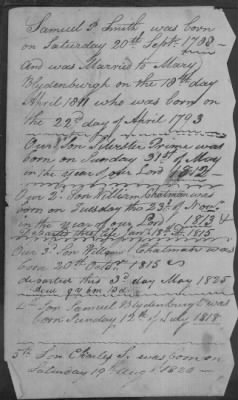 Samuel P. Smith was born
on Saturday 20th Sept. 1788 —
And was Married to Mary
Blydenburgh on the 18th day
April 1811 who was born on
the 22d day of April 1793
Our Son Silvester Prime was
born on Sunday 31st of May
in the year of our Lord 1812
Our 2d Son William Chatman was
born on Tuesday the 23d of Novr.
in the year of our Lord 1813 &
departed this life Jany. 18th 1815
Our 3d Son William Chatman was
born 20th Octobr. 1815 &
departed this 3d day May 1825
aged 9 y 6 m 13 d
4th Son Samuel Blydenburgh was
born Sunday 12th of July 1818
5th Son Charles J. was born on
Saturday 19th Augt 1820 —